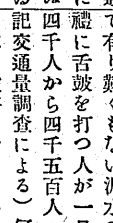 て有り難くもない泥水の
に禮に舌鼓を打つ人が一
四千人から四千五百人
記交通量調査による)